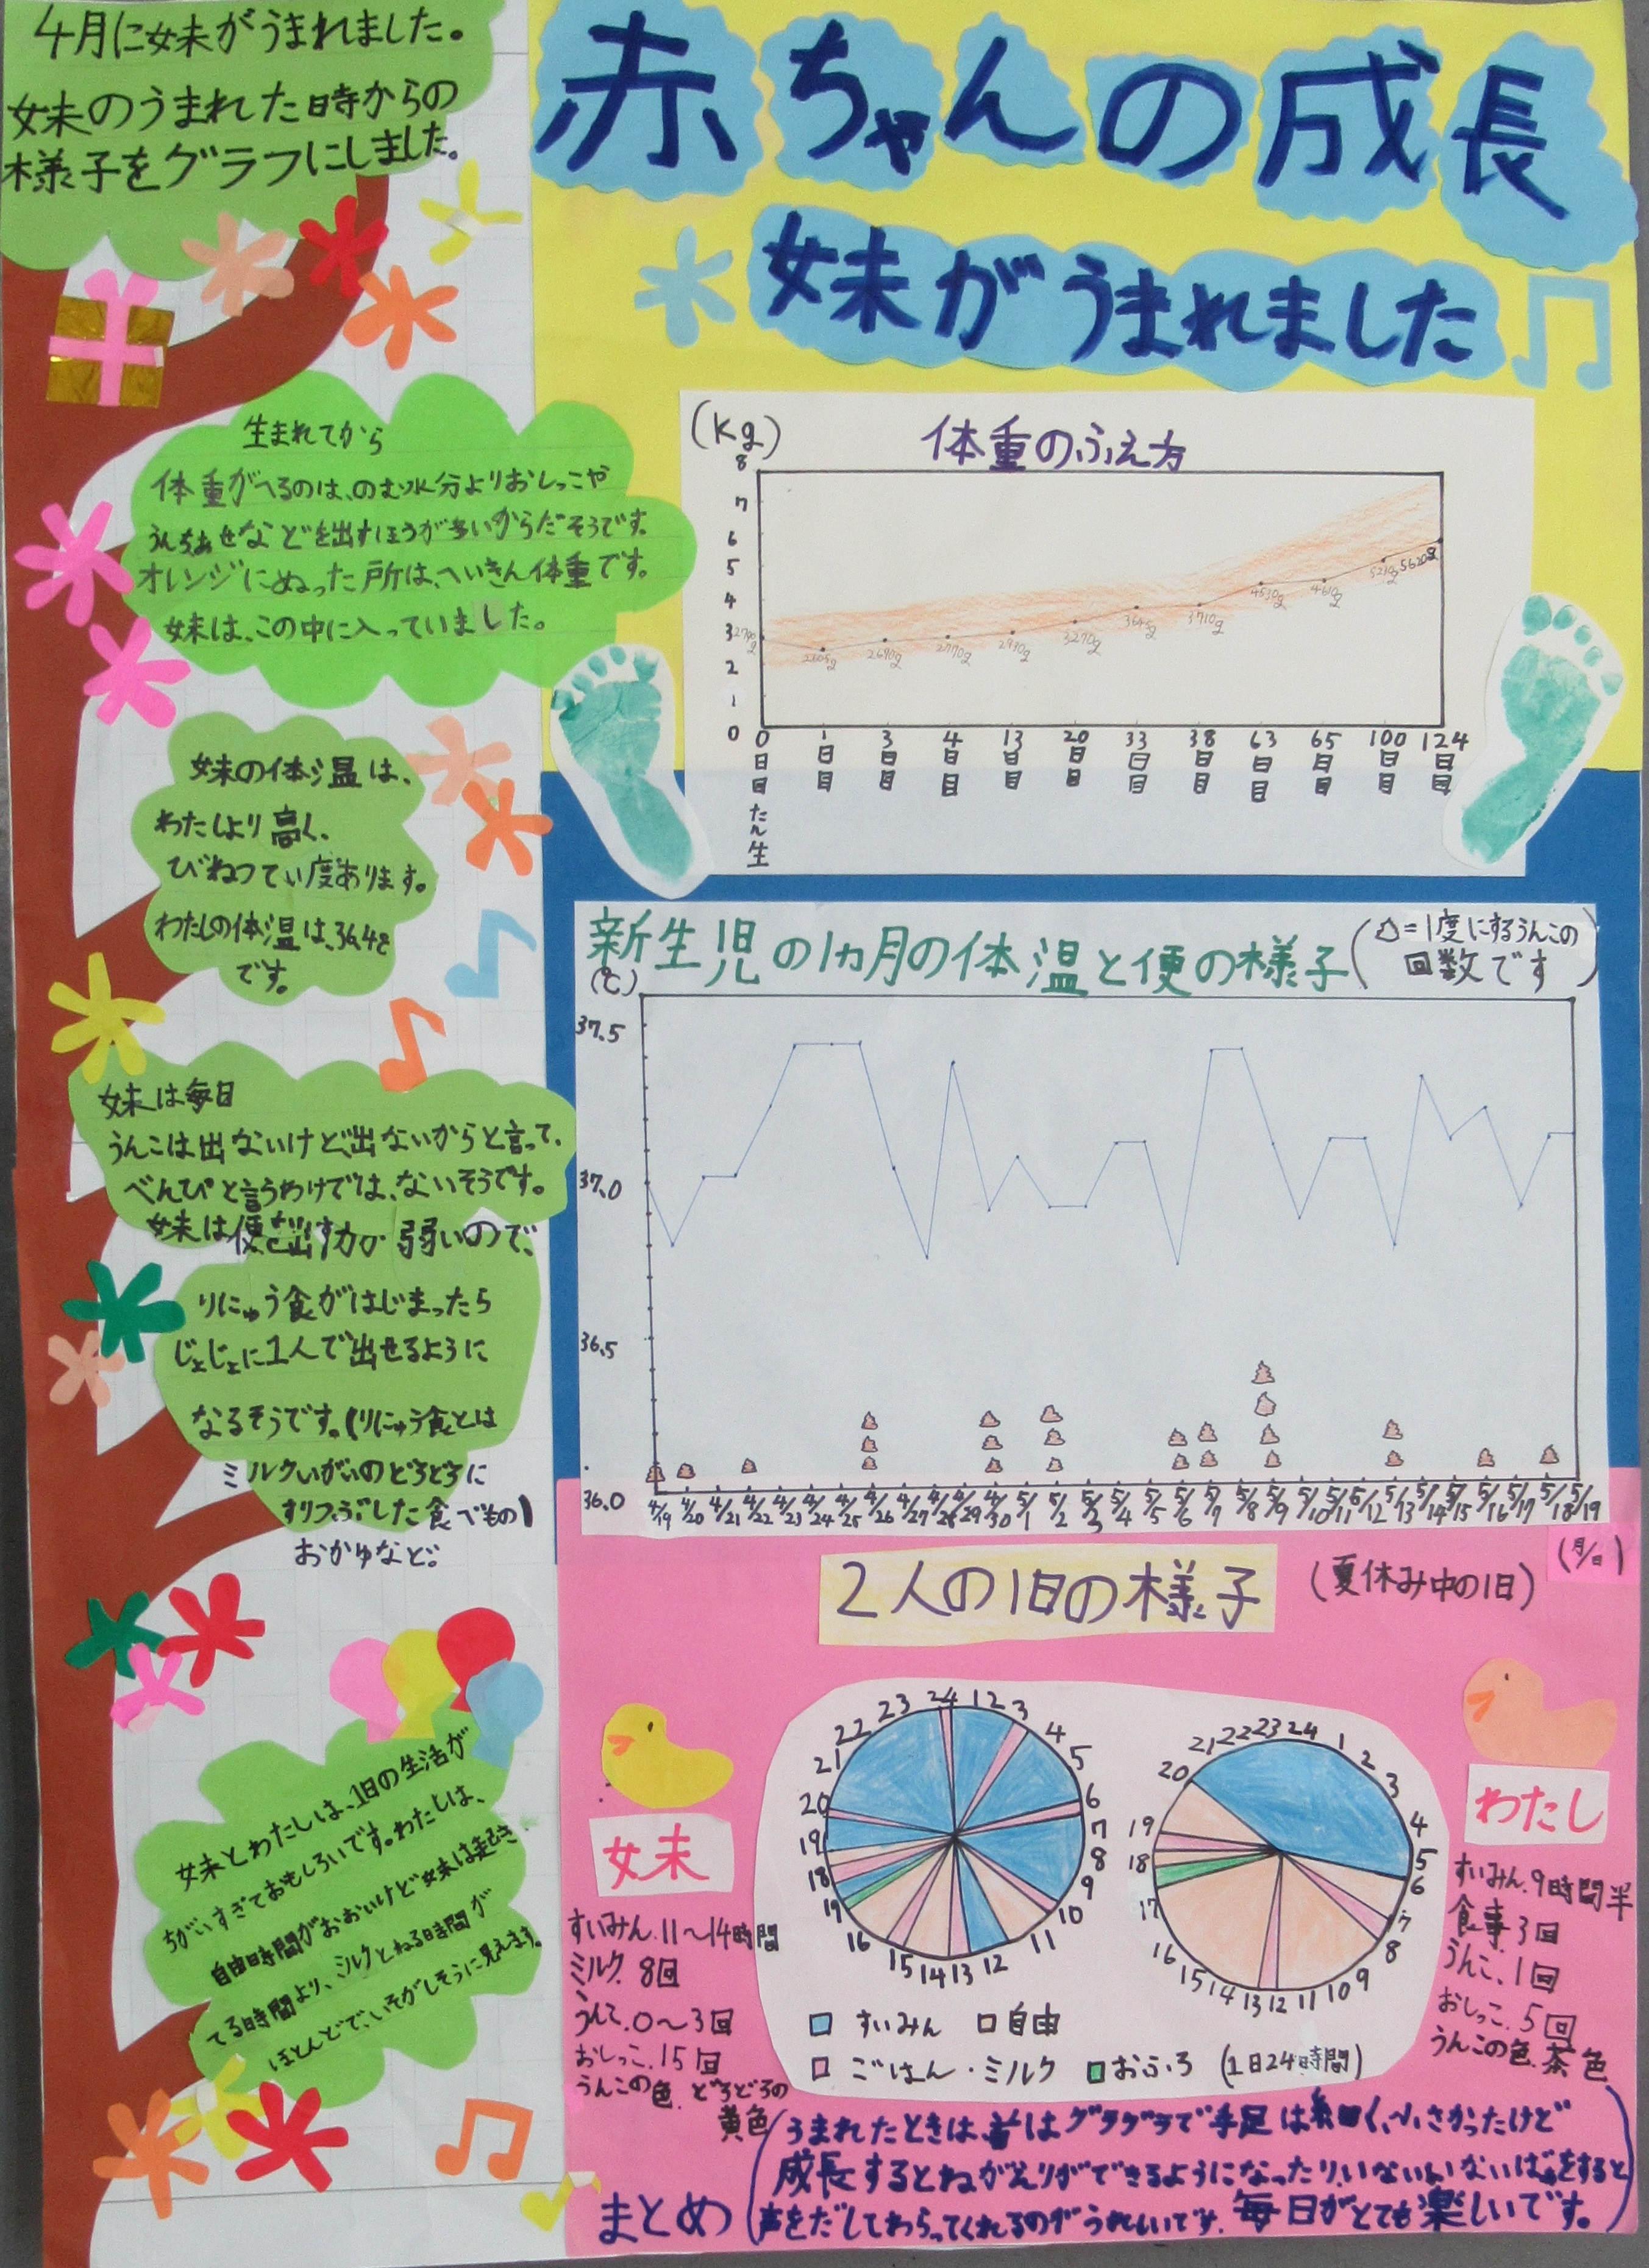 赤ちゃんの成長
妹がうまれました
4月に妹がうまれました。
妹のうまれた時からの
様子をグラフにしました。
生まれてから
体重がへるのは、のむ水分よりおしっこや
うんちあせなどを出すほうが多いからだそうです。
オレンジにぬった所は、へいきん体重です。
妹は、この中に入っていました。
妹の体温は、
わたしより高く、
びねつてい度あります。
わたしの体温は、36.4℃
です。
妹は毎日
うんこは出ないけど、出ないからと言って、
べんぴと言うわけでは、ないそうです。
妹は便を出す力が弱いので、
りにゅう食がはじまったら
じょじょに1人で出せるように
なるそうです。(りにゅう食とは
ミルクいがいのどろどろに
すりつぶした食べもの)
おかゆなど。
妹とわたしは、1日の生活が
ちがいすぎておもしろいです。わたしは、
自由時間がおおいけど妹は起き
てる時間より、ミルクとねる時間が
ほとんどで、いそがしそうに見えます。
(Kg)
体重のふえ方
8
7
6
5
4
3
2
1
0
2605g
2690g
2770g
2930g
3270g
3645g
3710g
4530g
4610g
5210g
5620g
0日目たん生
1日目
3日目
4日目
13日目
20日目
33日目
38日目
63日目
65日目
100日目
124日目
新生児の1ヵ月の体温と便の様子
(△=1度にするうんこの
回数です)
(℃)
37.5
37.0
36.5
36.0
4/19 4/20 4/21 4/22 4/23 4/24 4/25 4/26 4/27 4/28 4/29 4/30 5/1 5/2 5/3 5/4 5/5 5/6 5/7 5/8 5/9 5/10 5/11 5/12 5/13 5/14 5/15 5/16 5/17 5/18 5/19
(月/日)
2人の1日の様子
(夏休み中の1日)
妹
すいみん.11～14時間
ミルク.8回
うんこ.0～3回
おしっこ.15回
うんこの色.どろどろの
黄色
24 1 2 3 4 5 6 7 8 9 10 11 12 13 14 15 16 19 18 19 20 21 22 23
24 1 2 3 4 5 6 7 8 9 10 11 12 13 14 15 16 17 18 19 20 21 22 23
わたし
すいみん.9時間半
食事.3回
うんこ.1回
おしっこ.5回
うんこの色.茶色
すいみん 自由
ごはん・ミルク おふろ (1日24時間)
まとめ
(うまれたときは、首はグラグラで手足は細く、小さかったけど
成長するとねがえりができるようになったり、いないいないばぁをすると
声をだしてわらってくれるのがうれしいです。毎日がとても楽しいです。)